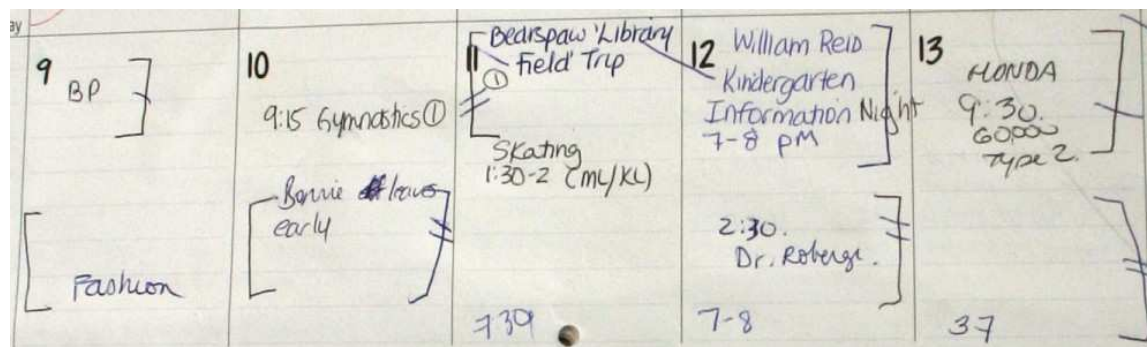 ay
9
BP
Fashion
10
9:15 Gymnastics ①
Bonnie leaves
early
11
Bearspaw Library
Field Trip
①
Skating
1:30-2 (ML/KL)
739
12
William Reid
Kindergarten
Information Night
7-8 pm
2:30.
Dr. Roberge.
7-8
13
HONDA
9:30.
60,000
Type 2.
37